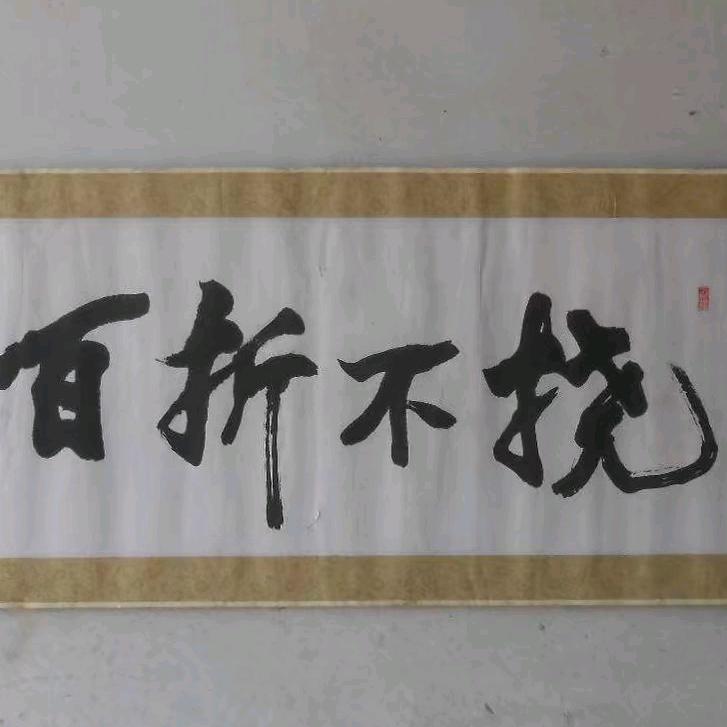 百折不挠